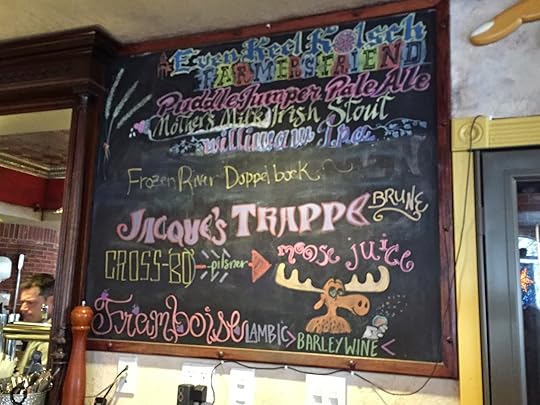 Even Keel Kolsch
FARMERS FRIEND
Puddle Jumper Pale Ale
Mother's Milk Irish Stout
williwaw Ipa
Frozen River Doppelbock
JACQUE'S TRAPPE BRUNE
CROSS-BO pilsner moose juice
Framboise LAMBIC > BARLEYWINE <